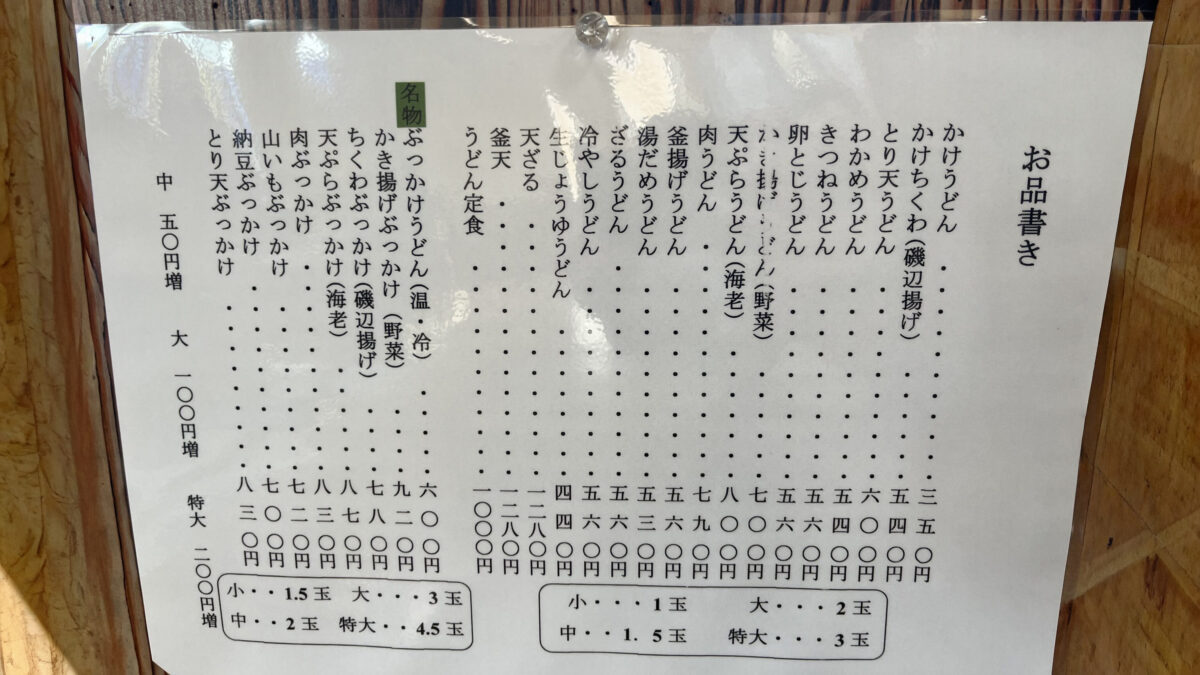 お品書き
かけうどん・・・・・・・・・・・三五〇円
かけちくわ(磯辺揚げ)・・・・・・五四〇円
とり天うどん・・・・・・・・・・六〇〇円
わかめうどん・・・・・・・・・・五四〇円
きつねうどん・・・・・・・・・・五六〇円
卵とじうどん・・・・・・・・・・五六〇円
かき揚げうどん(野菜)・・・・・・七〇〇円
天ぷらうどん(海老)・・・・・・・八〇〇円
肉うどん・・・・・・・・・・・・七九〇円
釜揚げうどん・・・・・・・・・・五六〇円
湯だめうどん・・・・・・・・・・五三〇円
ざるうどん・・・・・・・・・・・五六〇円
冷やしうどん・・・・・・・・・・五六〇円
生じょうゆうどん・・・・・・・・四四〇円
天ざる・・・・・・・・・・・・・一二八〇円
釜天・・・・・・・・・・・・・・一二八〇円
うどん定食・・・・・・・・・・・一〇〇〇円
名物
ぶっかけうどん(温・冷)・・・・・六〇〇円
かき揚げぶっかけ(野菜)・・・・九二〇円
ちくわぶっかけ(磯辺揚げ)・・・・七八〇円
天ぷらぶっかけ(海老)・・・・・・八七〇円
肉ぶっかけ・・・・・・・・・・・八三〇円
山いもぶっかけ・・・・・・・・・七二〇円
納豆ぶっかけ・・・・・・・・・・七〇〇円
とり天ぶっかけ・・・・・・・・・八三〇円
中 五〇円増 大 一〇〇円増 特大 二〇〇円増
小・・・1玉 大・・・2玉
中・・1.5玉 特大・・・3玉
小・・1.5玉 大・・・3玉
中・・2玉 特大・・4.5玉